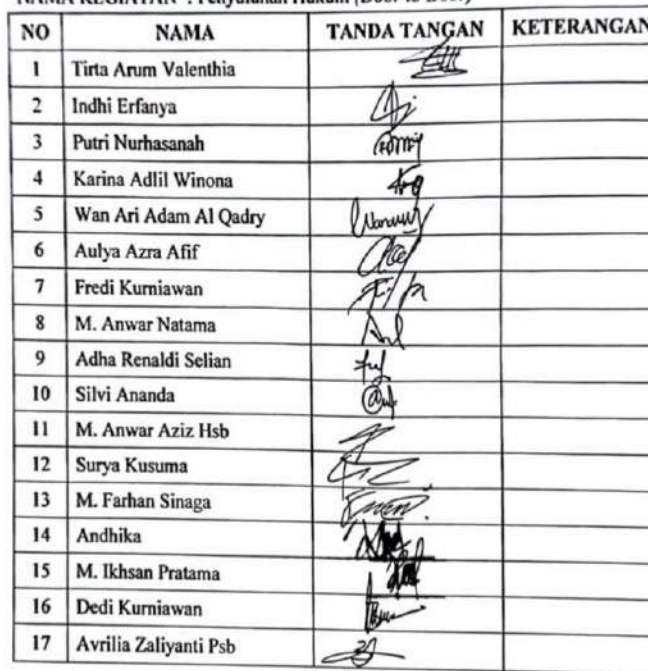 NAMA KEGIATAN : Penyuluhan Hukum (Door to Door)
NO NAMA TANDA TANGAN KETERANGAN
1 Tirta Arum Valenthia
2 Indhi Erfanya
3 Putri Nurhasanah
4 Karina Adlil Winona
5 Wan Ari Adam Al Qadry
6 Aulya Azra Afif
7 Fredi Kurniawan
8 M. Anwar Natama
9 Adha Renaldi Selian
10 Silvi Ananda
11 M. Anwar Aziz Hsb
12 Surya Kusuma
13 M. Farhan Sinaga
14 Andhika
15 M. Ikhsan Pratama
16 Dedi Kurniawan
17 Avrilia Zaliyanti Psb